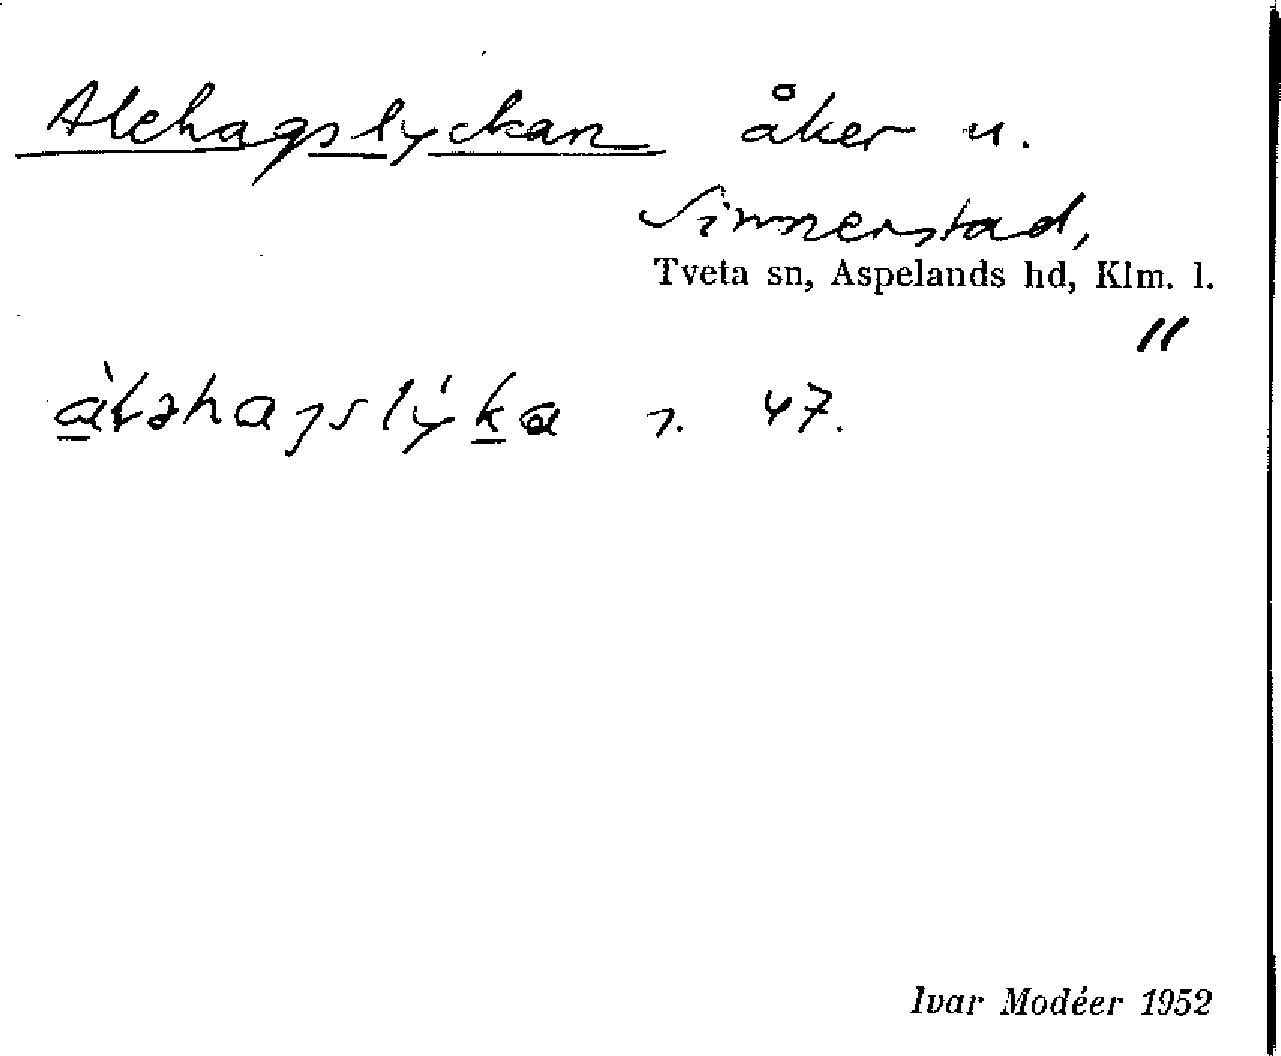 Alehagslyckan åker u.
Sinnerstad,
Tveta sn, Aspelands hd, Klm. l.
"
47.
Ivar Modéer 1952